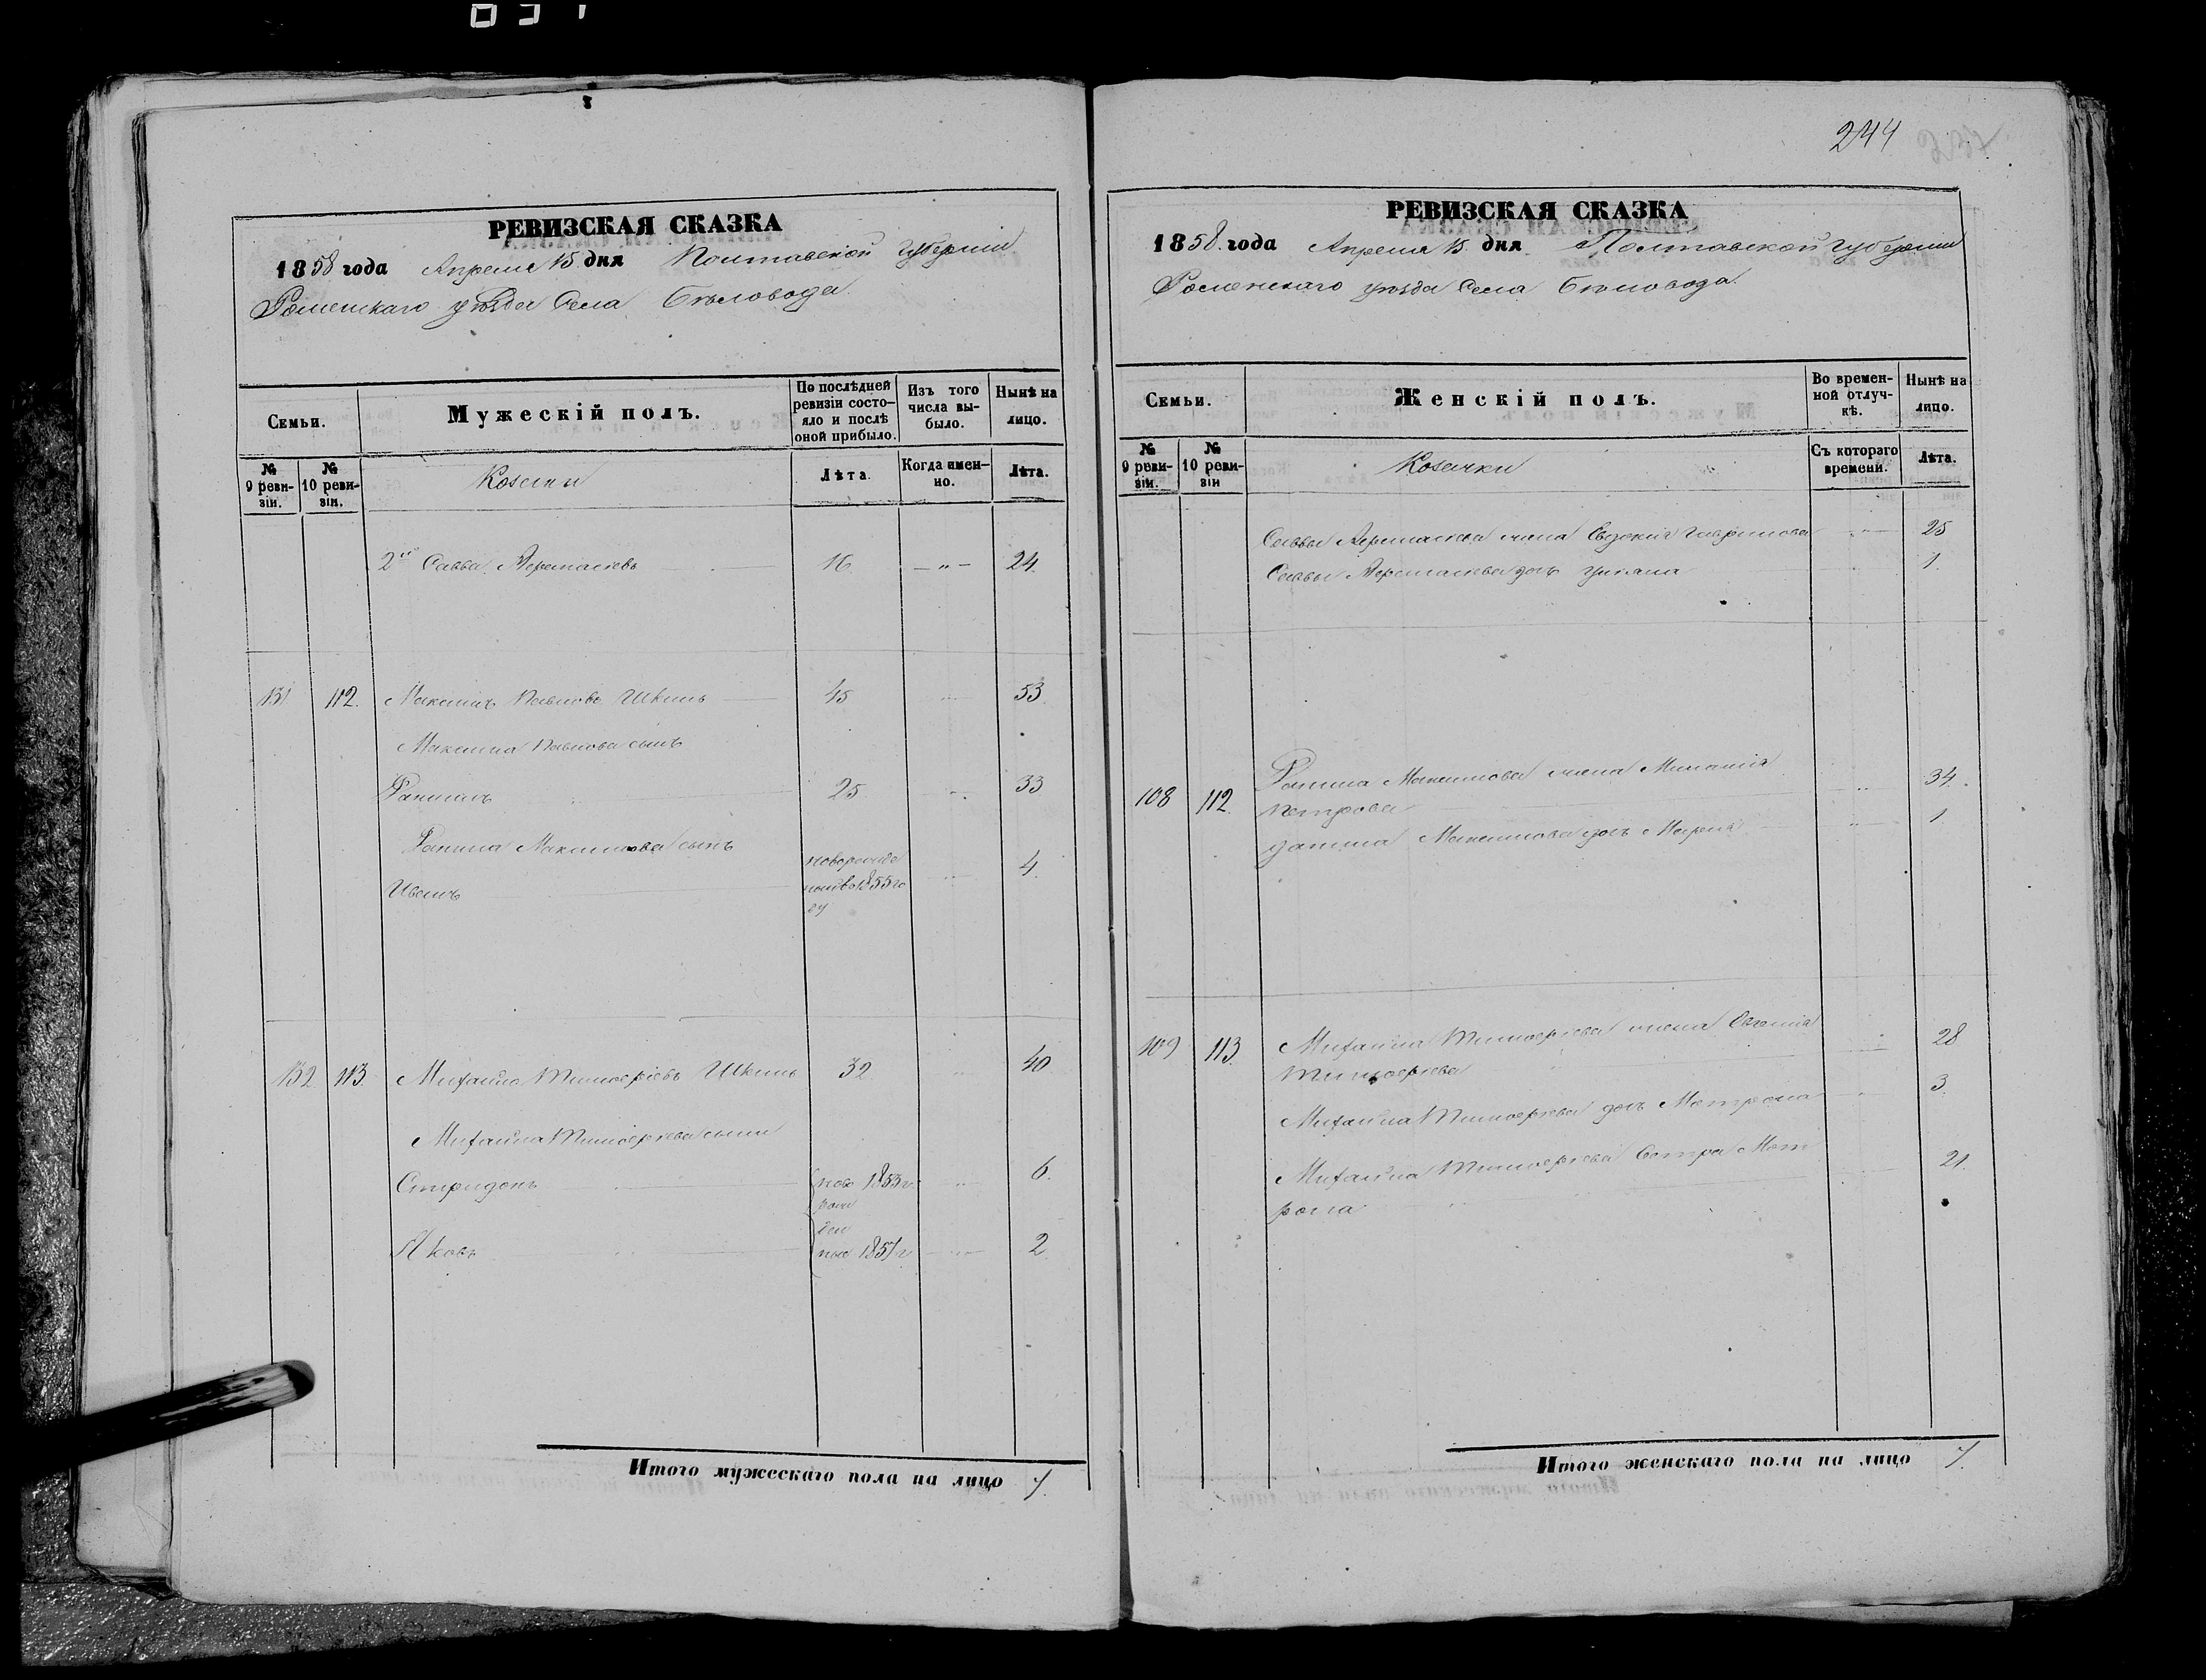 244
РЕВИЗСКАЯ СКАЗКА
1858 года Апреля 15 дня Полтавской Губерніи
Роменскаго уѣзда Села Бѣловода.
Семьи.
Мужескій полъ.
По послѣдней ревизіи состояло и послѣ оной прибыло.
Изъ того числа выбыло.
Нынѣ на лицо.
№ 9 ревизіи.
№ 10 ревизіи.
Козаки
Лѣта.
Когда именно.
Лѣта.
2й Савва 16 — „ — 24.
131 112. Максимъ Павловъ Шкиль 45 53
Максима Павлова сынъ
25 33
Максимова сынъ
Иванъ 1855 го 4.
ду
132 113 Михайло Тимофѣевъ Шкиль 32 40
Михайла Тимофѣева сыны
Спиридонъ 1853 г. 6.
Яковъ 1857 г. 2
Итого мужескаго пола на лицо 7.
РЕВИЗСКАЯ СКАЗКА
1858. года Апреля 15. дня Полтавской губерніи
Роменскаго уѣзда Села Бѣловода.
Семьи.
Женскій полъ.
Во временной отлучкѣ.
Нынѣ на лицо.
№ 9 ревизіи.
№ 10 ревизіи
Козачки
Съ котораго времени.
Лѣта.
Саввы жена Евдокія Гаврилова 25
Саввы дочь Ульяна 1.
108 112. Максимова жена 34.
Петрова
Максимова дочь Марія 1
109 113 Михайла Тимофѣева жена Евгенія 28
Тимофѣева
Михайла Тимофѣева дочь Матрона 3.
Михайла Тимофѣева Сестра Мат 21.
рона
Итого женскаго пола на лицо 7.